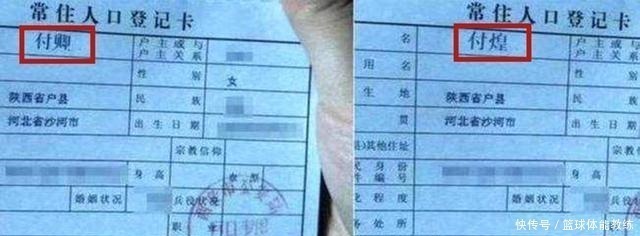 常住人口登记卡
付卿
户主或与
户主关系
性别
女
陕西省户县
民族
河北省沙河市
出生日期
宗教信仰
身高
血型
婚姻状况
兵役状况
职
常住人口登记卡
名
付煌
户主或与
户主关系
用名
性别
生地
陕西省户县
民族
贯
河北省沙河市
出生日期
县)其他住址
宗教信仰
民身份
件编号
身高
化程度
婚姻状况
兵
务处所
快传号 / 篮球体能教练